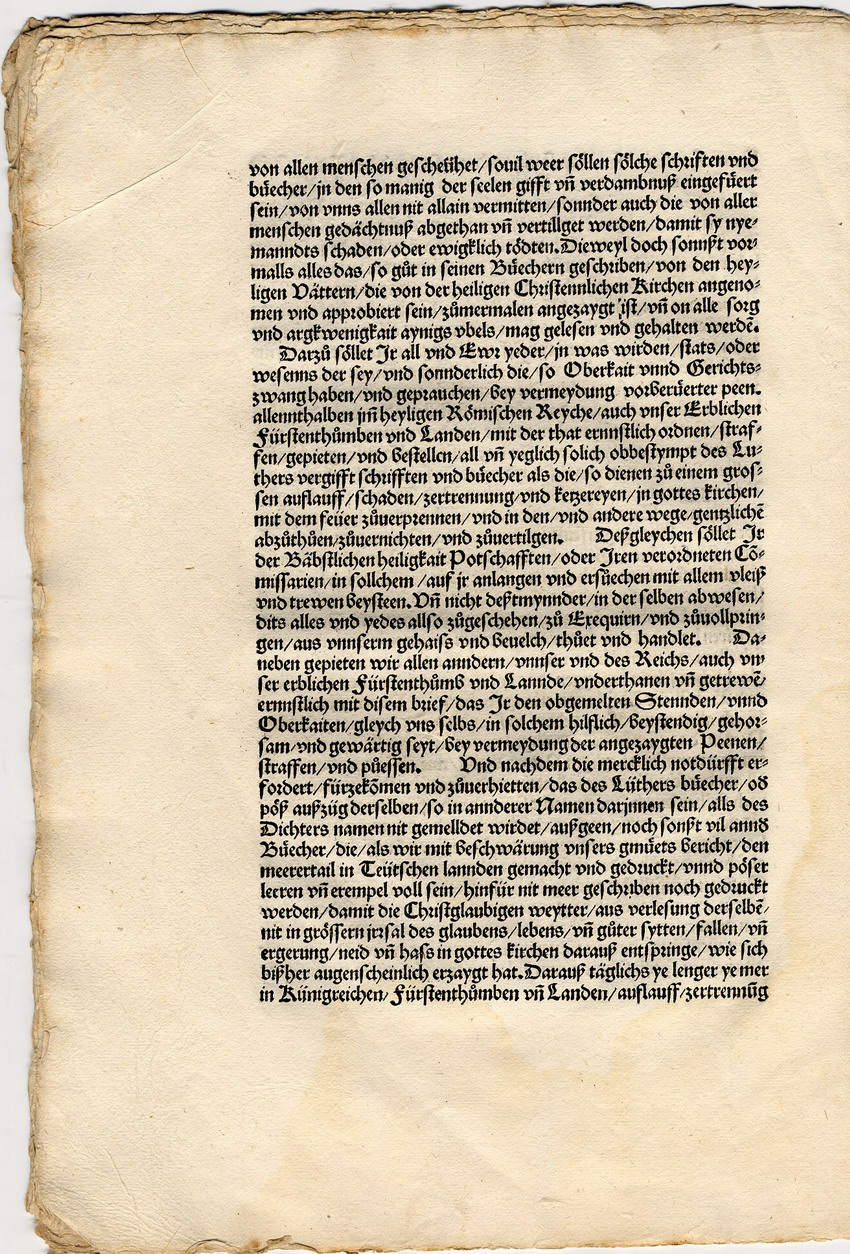 von allen menschen gescheühet/souil weer söllen sölche schriften vnd
büecher/jn den so manig der seelen gifft vñ verdambnuß eingefüert
sein/von vnns allen nit allain vermitten/sonnder auch die von aller
menschen gedächtnuß abgethan vñ vertillget werden/damit sy nye⸗
manndts schaden/oder ewigklich tödten. Dieweyl doch sonnst vor⸗
malls alles das/so gůt in seinen Büechern geschriben/von den hey⸗
ligen Vättern/die von der heiligen Christennlichen Kirchen angeno⸗
men vnd approbiert sein/zůmermalen angezaygt ist/vñ on alle sorg
vnd argkwenigkait aynigs vbels/mag gelesen vnd gehalten werdē.
Darzů söllet Ir all vnd Ewr yeder/jn was wirden/stats/oder
wesenns der sey/vnd sonnderlich die/so Oberkait vnnd Gerichts⸗
zwang haben/vnd geprauchen/bey vermeydung vorberüerter peen.
allennthalben jm̃ heyligen Römischen Reyche/auch vnser Erblichen
Fürstenthůmben vnd Landen/mit der that ernnstlich ordnen/straf⸗
fen/gepieten/vnd bestellen/all vñ yeglich solich obbestympt des Lu⸗
thers vergifft schrifften vnd büecher als die/so dienen zů einem gros⸗
sen auflauff/schaden/zertrennung/vnd ketzereyen/jn gottes kirchen/
mit dem feüer zůuerprennen/vnd in den/vnd andere wege/gentzlichē
abzůthůen/zůuernichten/vnd zůuertilgen. Deßgleychen söllet Ir
der Bäbstlichen heiligkait Potschafften/oder Iren verordneten Cō⸗
missarien/in sollchem/auf jr anlangen vnd ersüechen mit allem vleiß
vnd trewen beysteen. Vñ nicht destmynnder/in der selben abwesen/
dits alles vnd yedes allso zůgeschehen/zů Exequirn/vnd zůuollprin⸗
gen/aus vnnserm gehaiss vnd beuelch/thůet vnd handlet. Da⸗
neben gepieten wir allen anndern/vnnser vnd des Reichs/auch vn⸗
ser erblichen Fürstenthůmb vnd Lannde/vnderthanen vñ getrewē/
ernnstlich mit disem brief/das Ir den obgemelten Stennden/vnnd
Oberkaiten/gleych vns selbs/in solchem hilflich/beystendig/gehor⸗
sam/vnd gewärtig seyt/bey vermeydung der angezaygten Peenen/
straffen/vnd půessen. Vnd nachdem die mercklich notdürfft er⸗
fordert/fürzekōmen vnd zůuerhietten/das des Lüthers büecher/od̕
pöß außzüg derselben/so in annderer Namen darjnnen sein/alls des
Dichters namen nit gemelldet wirdet/außgeen/noch sonst vil annd̕
Büecher/die/als wir mit beschwärung vnsers gmüets bericht/den
meerertail in Teütschen lannden gemacht vnd gedruckt/vnnd pöser
leeren vñ exempel voll sein/hinfür nit meer geschriben noch gedruckt
werden/damit die Christglaubigen weytter/aus verlesung derselbē/
nit in grössern jrrsal des glaubens/lebens/vñ gůter sytten/fallen/vñ
ergerung/neid vñ hass in gottes kirchen darauß entspringe/wie sich
bißher augenscheinlich erzaygt hat. Darauß täglichs ye lenger ye mer
in Künigreichen/Fürstenthůmben vñ Landen/auflauff/zertrennūg